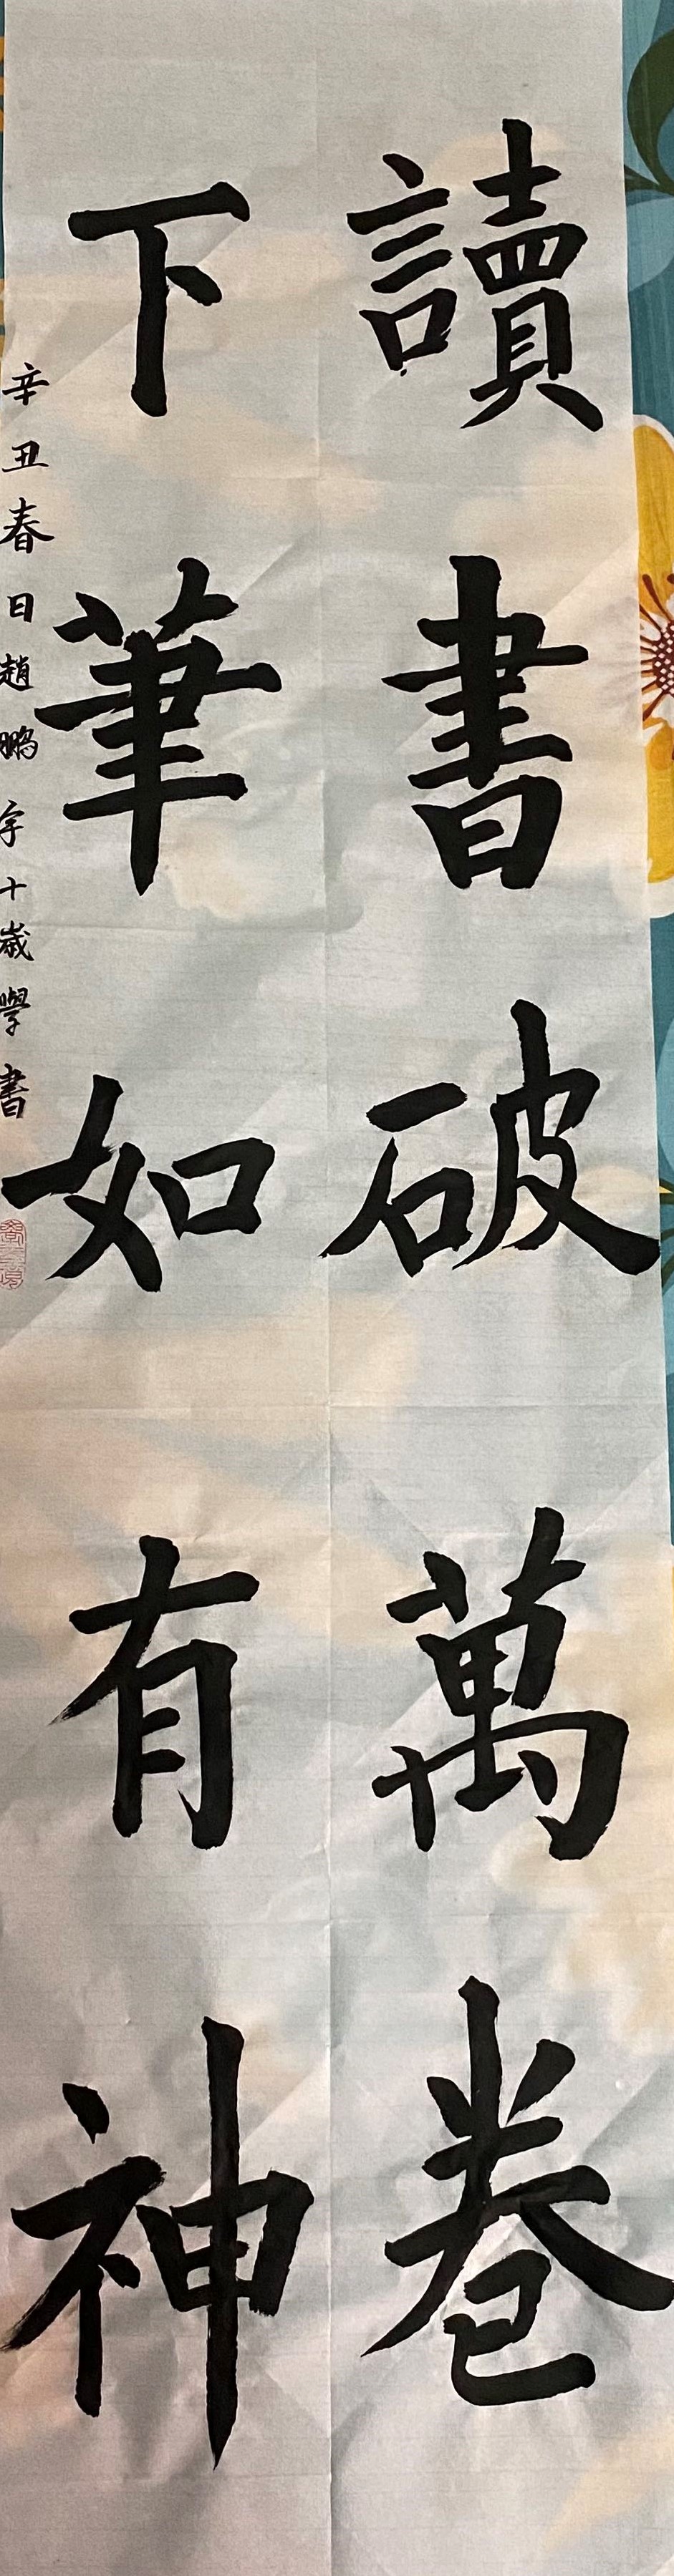 讀書破萬卷
下筆如有神
辛丑春日趙鵬宇十歲學書